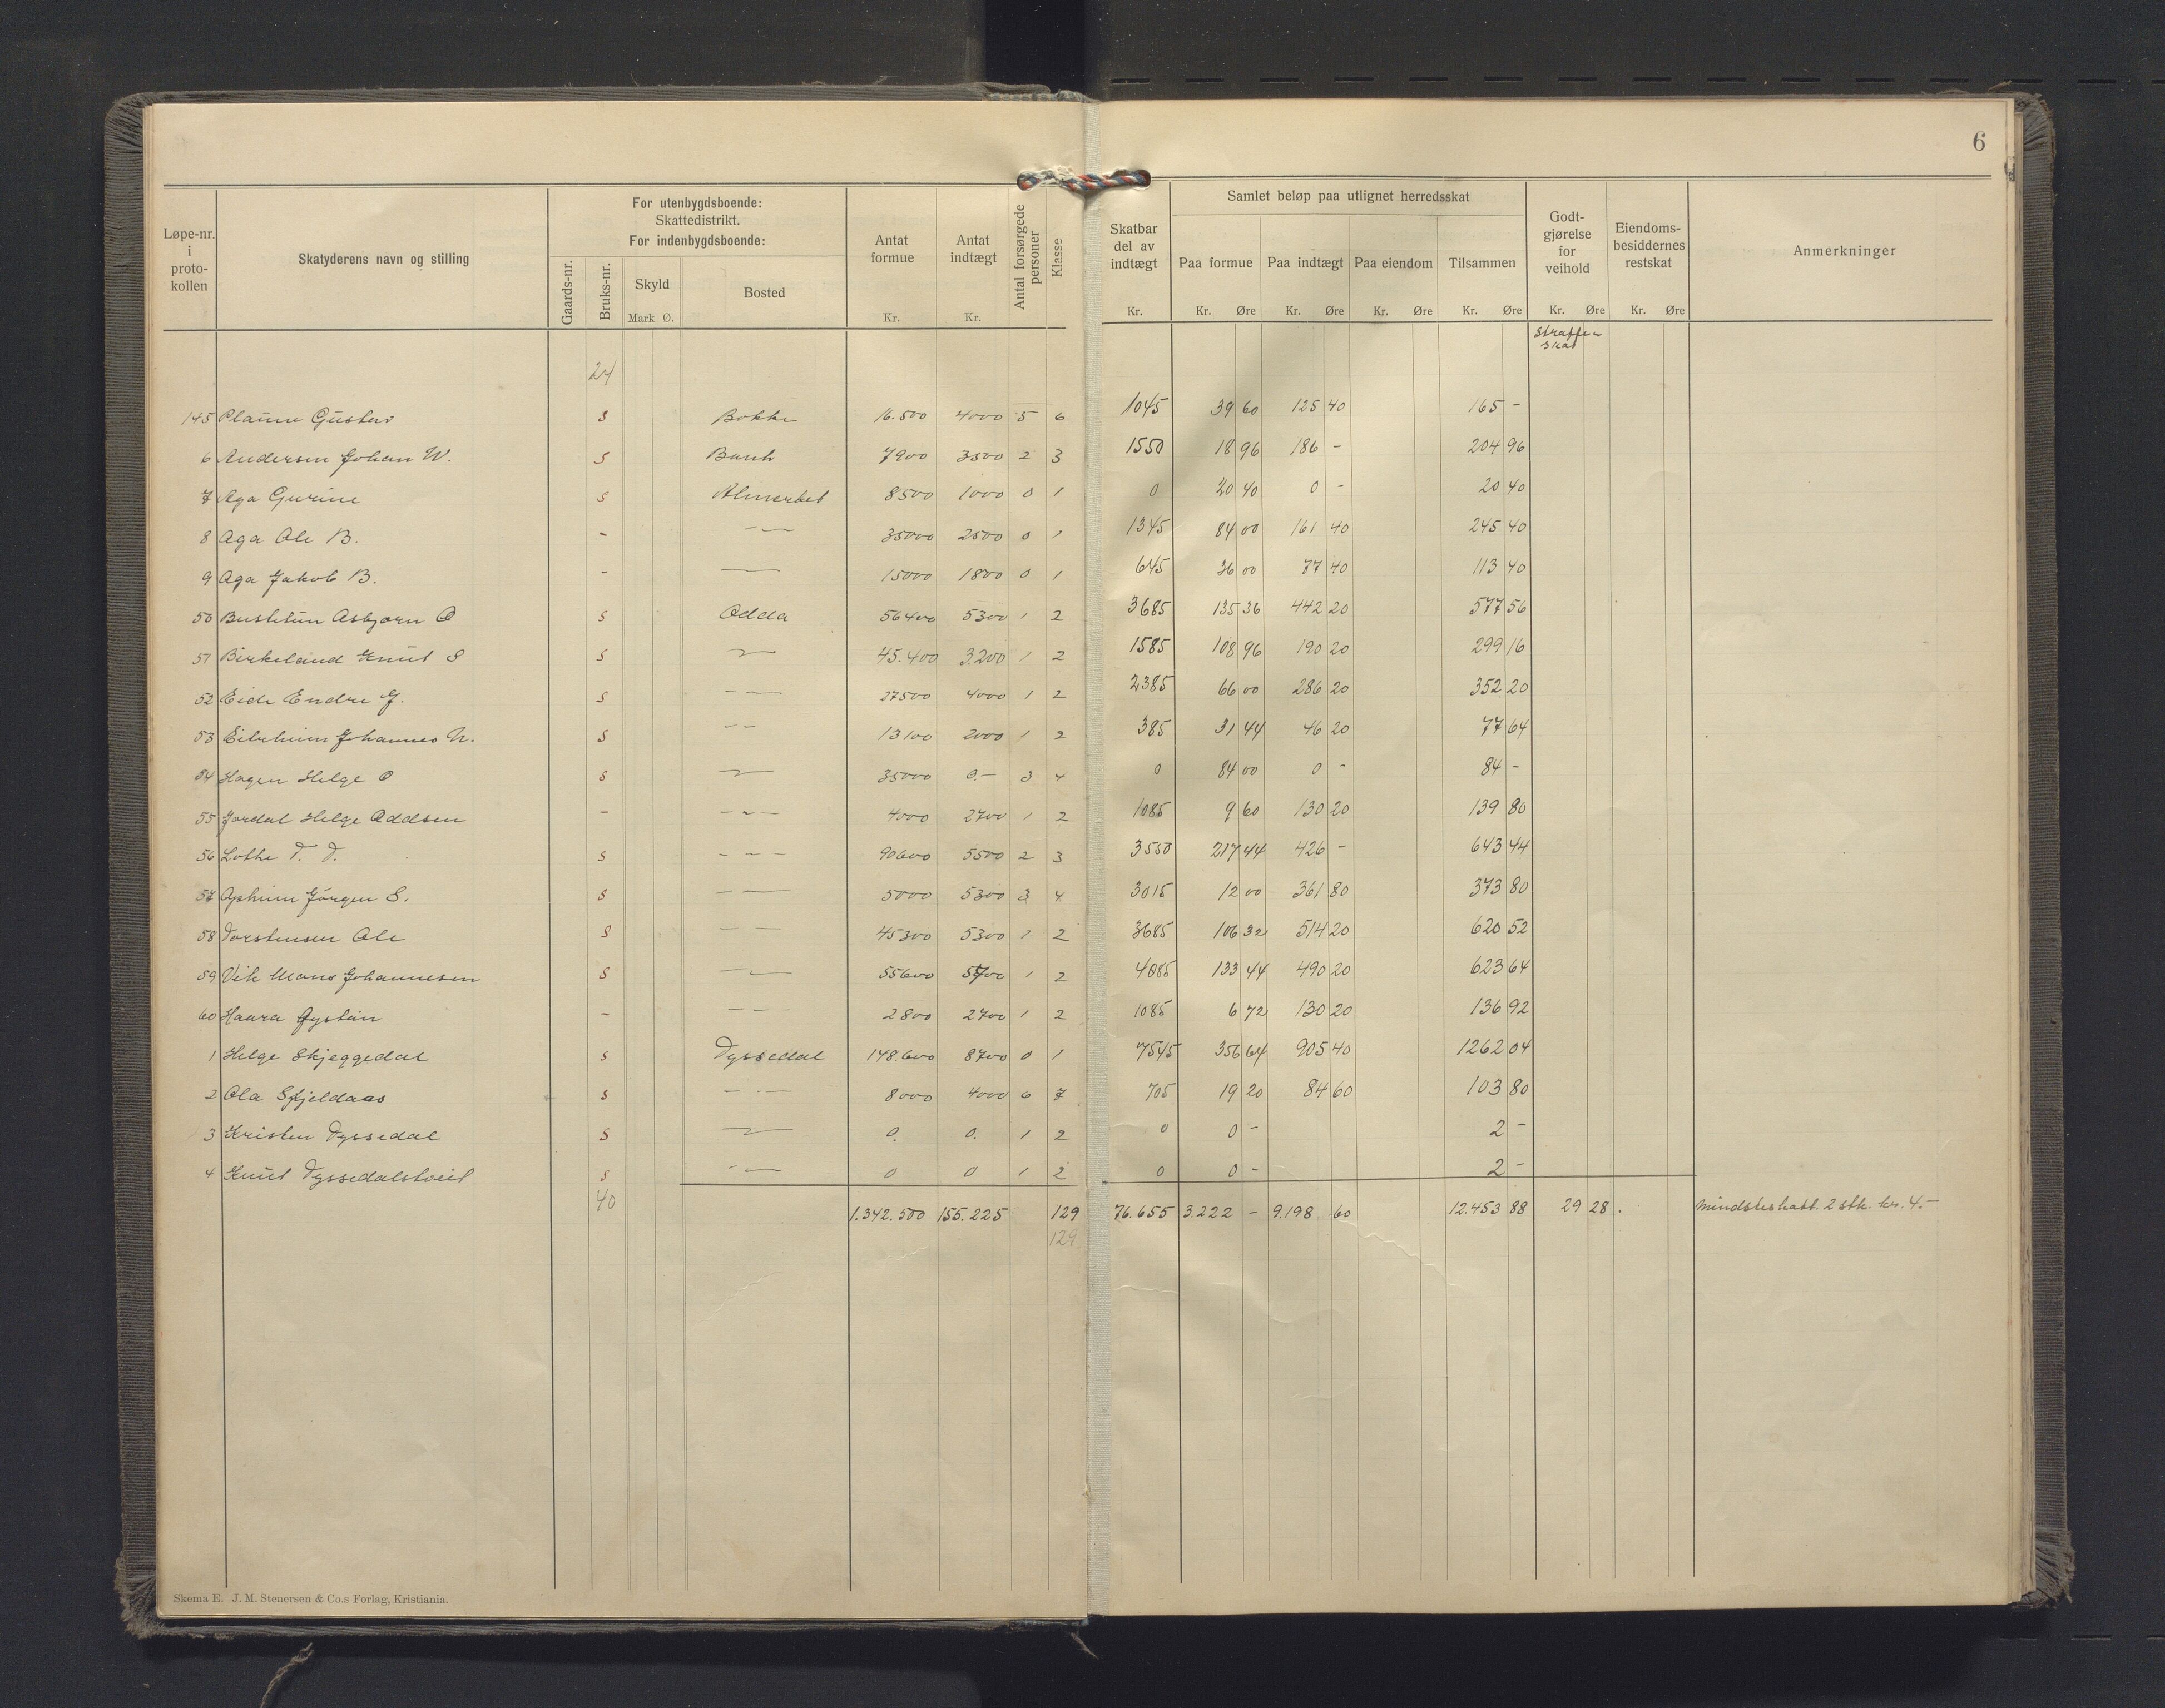 6
Løpe-nr. i proto-kollen Skatyderens navn og stilling For utenbygdsboende: Skattedistrikt. For indenbygdsboende: Gaards-nr. Bruks-nr. Skyld Mark Ø. Bosted Antat formue Kr. Antat indtægt Kr. Antal forsørgede personer Klasse Skatbar del av indtægt Kr. Samlet beløp paa utlignet herredsskat Paa formue Kr. Øre Paa indtægt Kr. Øre Paa eiendom Kr. Øre Tilsammen Kr. Øre Godt-gjørelse for veihold Kr. Øre Eiendoms-besiddernes restskat Kr. Øre Anmerkninger
Straffe-skat
24
145 Gustav S Bokke 16.500 4000 5 6 1045 39 60 125 40 165 -
6 Andersen Johan W. S Bank 7900 3500 2 3 1550 18 96 186 - 204 96
7 Aga Gurine S Almerket 8500 1000 0 1 0 20 40 0 - 20 40
8 Aga Ole B. - -"- 35000 2500 0 1 1345 84 00 161 40 245 40
9 Aga Jakob B. - -"- 15000 1800 0 1 645 36 00 77 40 113 40
50 Bustetun Asbjørn O S Odda 56400 5300 1 2 3685 135 36 442 20 577 56
51 Birkeland Knut S S -"- 45.400 3.200 1 2 1585 108 96 190 20 299 16
52 Eide Endre J. S -"- 27500 4000 1 2 2385 66 00 286 20 352 20
53 Eitrheim Johannes N. S -"- 13100 2000 1 2 385 31 44 46 20 77 64
54 Hagen Helge O S -"- 35000 0.- 3 4 0 84 00 0 - 84 -
55 Jordal Helge Oddsen - -"- 4000 2700 1 2 1085 9 60 130 20 139 80
56 Lothe T. T. S -"- 90600 5500 2 3 3550 217 44 426 - 643 44
57 Opheim Jørgen S. S -"- 5000 5300 3 4 3015 12 00 361 80 373 80
58 Torstensen Ole S -"- 45300 5300 1 2 3685 106 32 514 20 620 52
59 Vik Mons Johannesen S -"- 55600 5700 1 2 4085 133 44 490 20 623 64
60 Haara Øystein - -"- 2800 2700 1 2 1085 6 72 130 20 136 92
1 Helge Skjeggedal S Tyssedal 148.600 8700 0 1 7545 356 64 905 40 1262 04
2 Ola Skjeldaas S -"- 8000 4000 6 7 705 19 20 84 60 103 80
3 Kristen Tyssedal S -"- 0. 0. 1 2 0 0 - 2 -
4 Knut Tyssedalstveit S -"- 0 0 1 2 0 0 - 2 -
40 1.342.500 155.225 129 76.655 3.222 - 9.198 60 12.453 88 29 28 . Mindsteskatt. 2 stk. kr. 4.-
129
Skema E. J. M. Stenersen & Co.s Forlag, Kristiania.